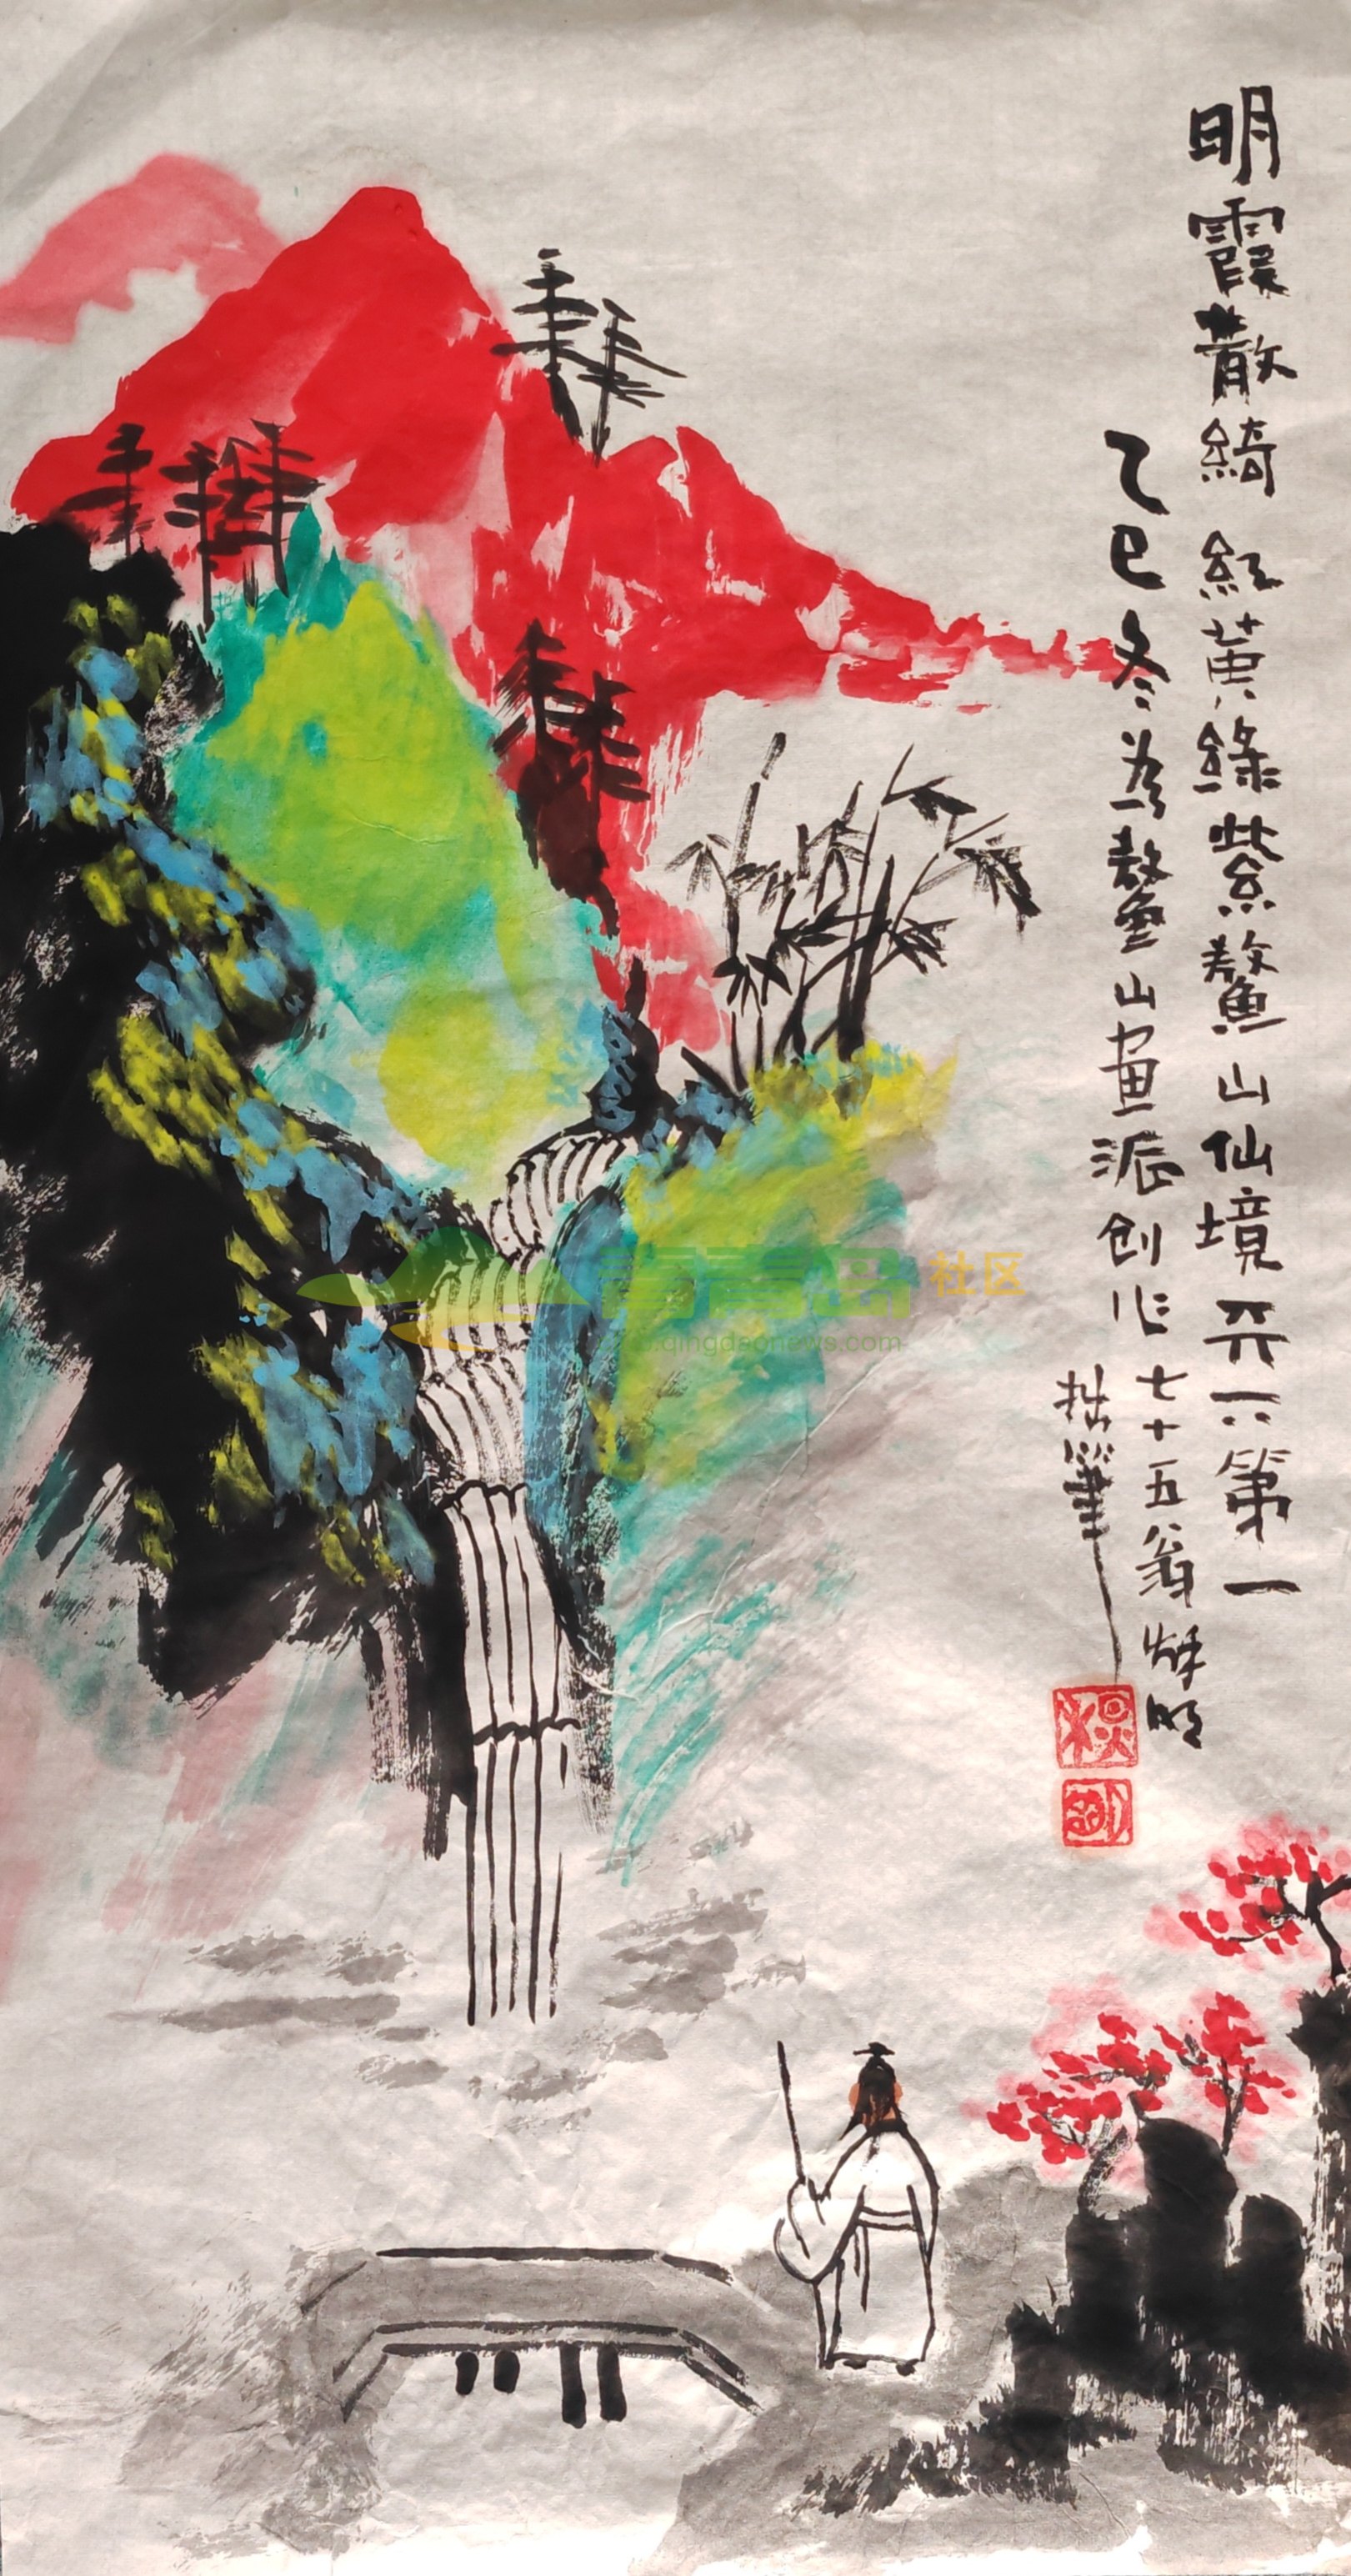 明霞散綺 紅黄綠紫鰲山仙境天下第一
乙巳冬為鰲山画派创作七十五翁
拙筆
青青岛社区
.qingdaonews.com